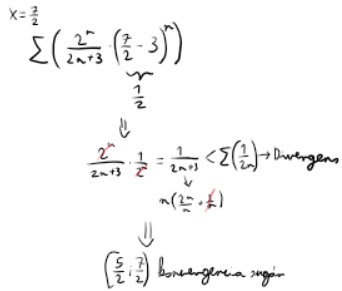 x = 7/2
∑ ( 2^n / (2n+3) · (7/2 - 3)^n )
1/2
⇓
2^n / (2n+3) · 1/2^n = 1/(2n+3) < ∑(1/2n) → Divergens
n(2n/n +
⇓
(5/2 ; 7/2) konvergencia sugár